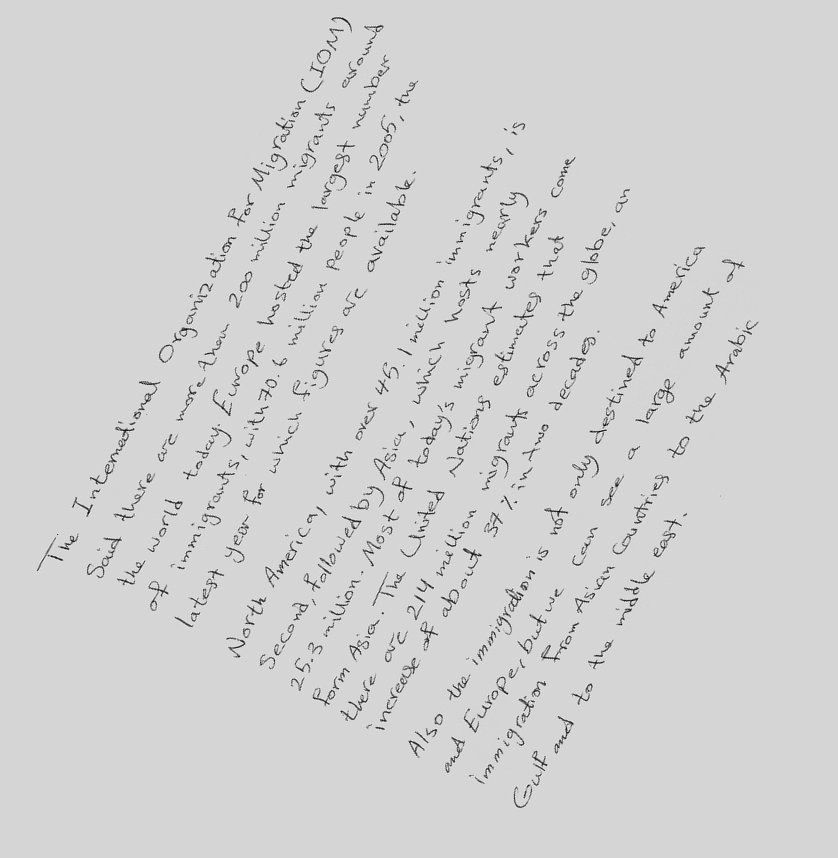 The International Organization for Migration (IOM)
Said there are more than 200 million migrants around
the world today. Europe hosted the largest number
of immigrants, with 70.6 million people in 2005, the
latest year for which figures are available.
North America, with over 45.1 million immigrants, is
Second, followed by Asia, which hosts nearly
25.3 million. Most of today's migrant workers come
form Asia. The United Nations estimates that
there are 214 million migrants across the globe, an
increase of about 37% in two decades.
Also the immigration is not only destined to America
and Europe, but we can see a large amount of
immigration from Asian Countries to the Arabic
Gulf and to the middle east.